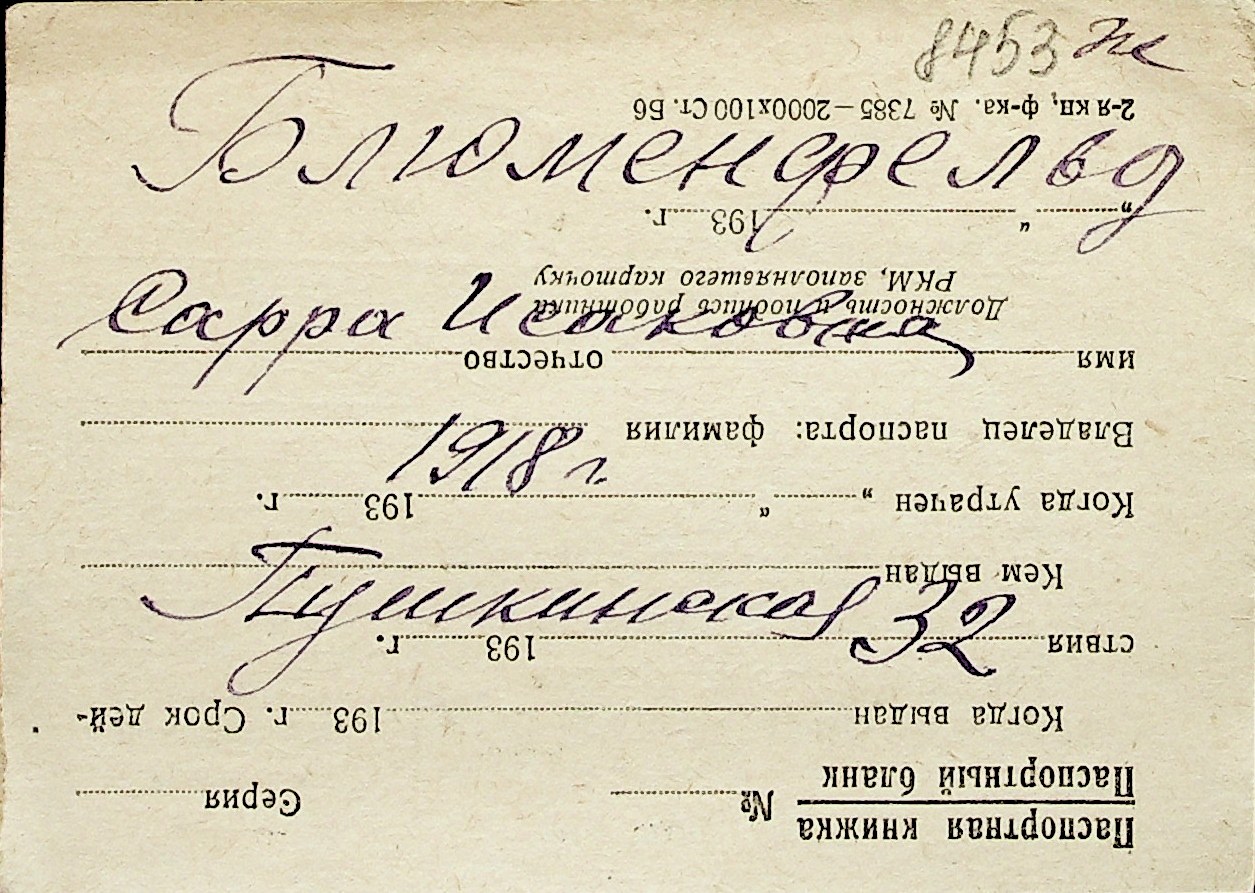 8453 
Блюменфельд
Сарра Исаковна
1918 г.
Пушкинская 32
Паспортная книжка
Паспортный бланк
№ Серия
Когда выдан 193 г. Срок дей-
ствия 193 г.
Кем выдан
Когда утрачен „ “ 193 г.
Владелец паспорта: фамилия
имя отчество
Должность и подпись работника
РКМ, заполнявшего карточку
„ “ 193 г.
2-я кн, ф-ка. № 7385—2000х100 Ст. Бб